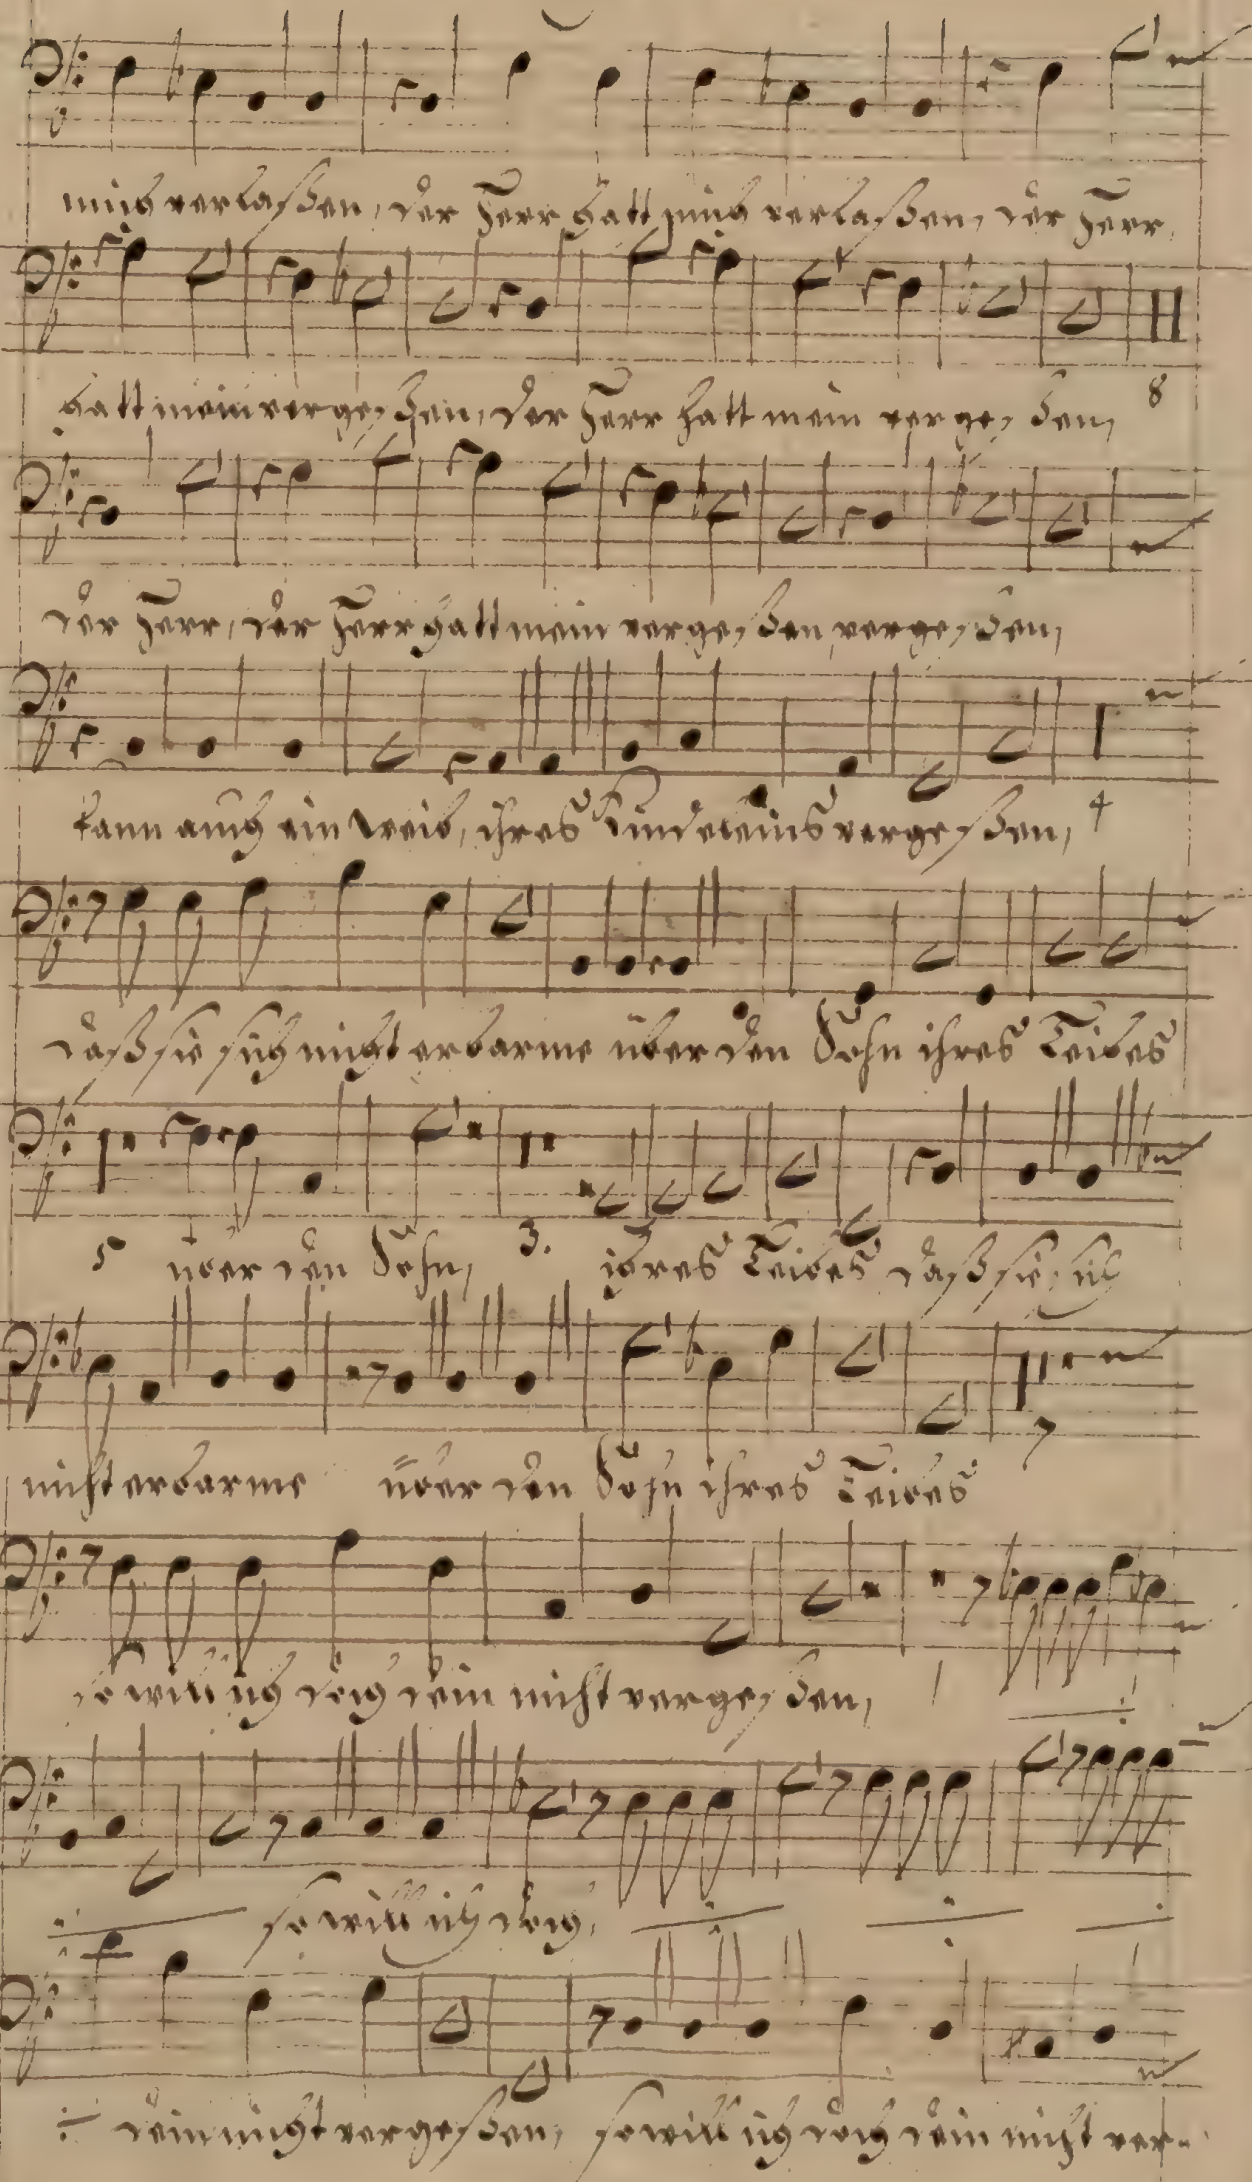 mich verlaßen, der Herr hatt mich verlaßen, der Herr,
hatt mein verge, ßen, der Herr hatt mein verge, ßen, 8
der Herr, der Herr hatt mein verge, ßen, verge, ßen,
kann auch ein weib, ihres Kindeleins vergeßen, 4
daß sie sich nicht erbarme über den Sohn ihres Leibes
5 über den Sohn, 3. ihres Leibes daß sie sich
nicht erbarme über den Sohn ihres Leibes 7
so will ich doch dein nicht verge, ßen,
so will ich doch,
dein nicht vergeßen, so will ich doch dein nicht ver-